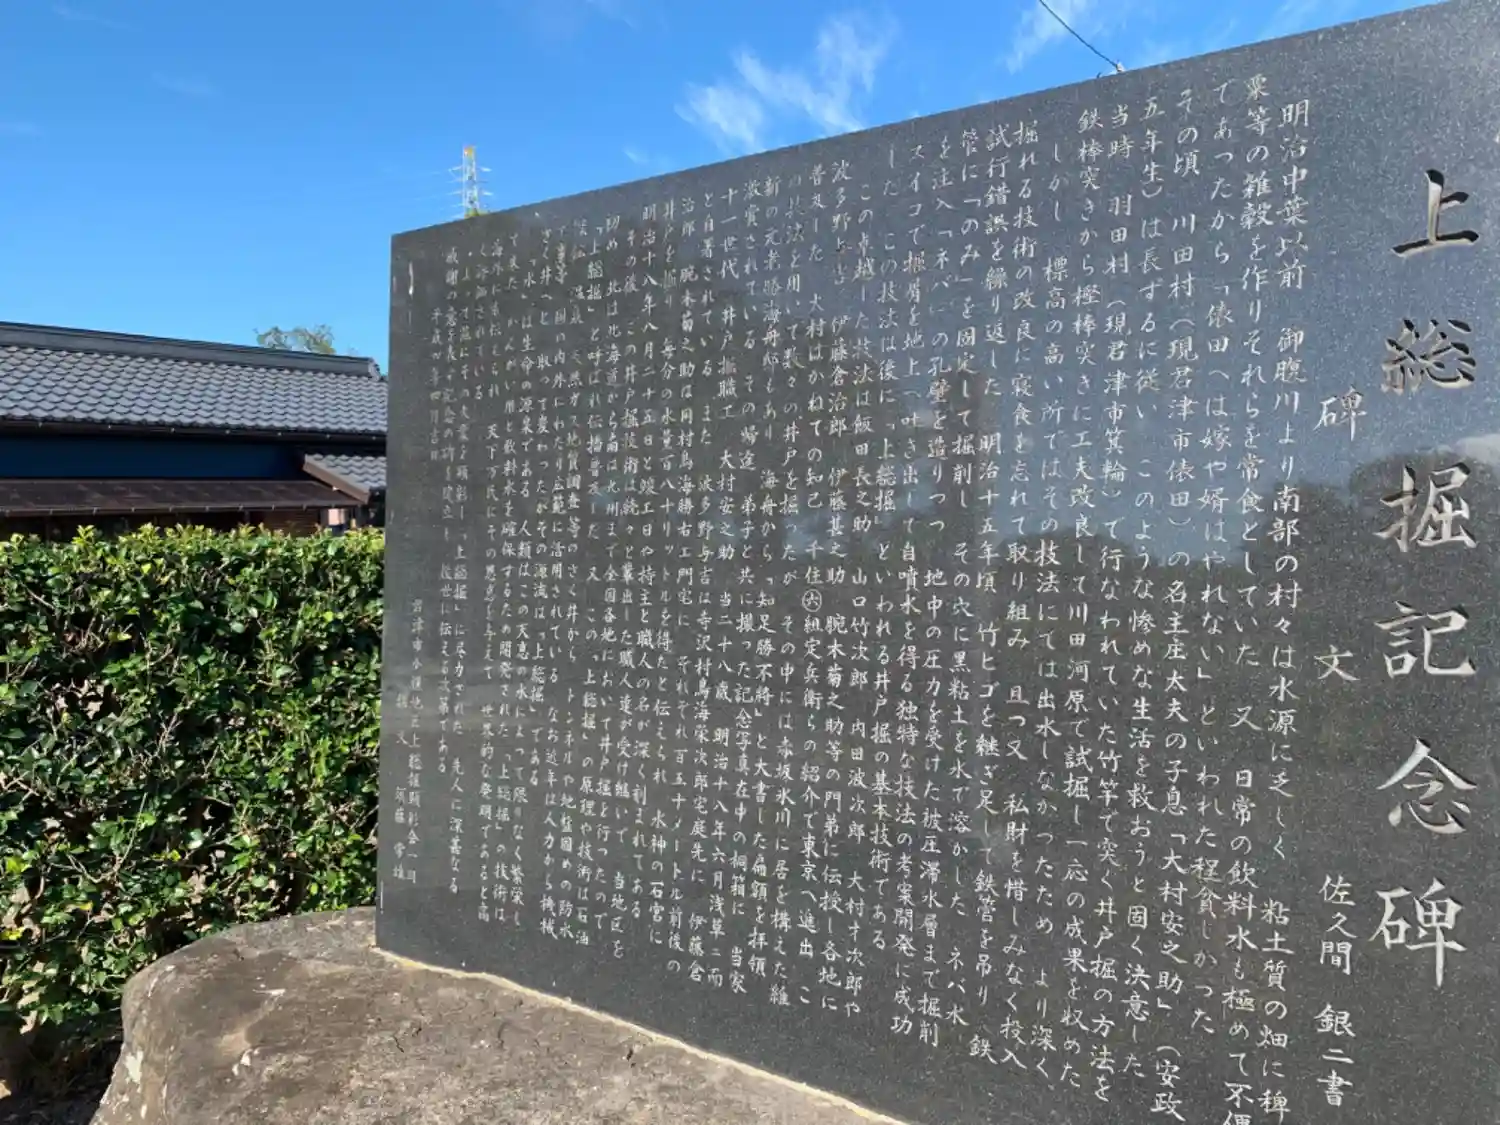 上総掘記念碑
碑文 佐久間 銀二書
明治中葉以前 御腹川より南部の村々は水源に乏しく 粘土質の畑に稗
粟等の雑穀を作りそれらを常食としていた 又 日常の飲料水も極めて不便
であったから「俵田へは嫁や婿はやれない」といわれた程貧しかった
その頃 川田村(現君津市俵田)の名主庄太夫の子息「大村安之助」(安政
五年生)は長ずるに従い このような惨めな生活を救おうと固く決意した
当時 羽田村(現君津市箕輪)で行なわれていた竹竿で突く井戸掘の方法を
鉄棒突きから樫棒突きに工夫改良して川田河原で試掘し一応の成果を収めた
しかし 標高の高い所ではその技法にては出水しなかったため より深く
掘れる技術の改良に寝食を忘れて取り組み 且つ又 私財を惜しみなく投入
試行錯誤を繰り返した 明治十五年頃 竹ヒゴを継ぎ足して鉄管を吊り 鉄
管に「のみ」を固定して掘削し その穴に黒粘土を水で溶かした ネバ水
を注入「ネバ」の孔壁を造りつつ 地中の圧力を受けた被圧滞水層まで掘削
スイコで掘屑を地上へ吐き出して自噴水を得る独特な技法の考案開発に成功
した この技法は後に「上総掘」といわれる井戸掘の基本技術である
この卓越した技法は飯田長之助 山口竹次郎 内田波次郎 大村才次郎や
波多野与吉 伊藤倉治郎 伊藤甚之助 腕木菊之助等の門弟に伝授し各地に
普及した 大村はかねての知己 千住㊅組定兵衛らの紹介で東京へ進出 こ
の技法を用いて数々の井戸を掘ったが その中には赤坂氷川に居を構えた維
新の元老勝海舟邸もあり 海舟から「知足勝不将」と大書した扁額を拝領
激賞されている その帰途 弟子と共に撮った記念写真在中の桐箱に 当家
十一世代 井戸掘職工 大村安之助 当二十八歳 明治十八年六月浅草ニ而
と自署されている また 波多野与吉は寺沢村鳥海栄次郎宅庭先に 伊藤倉
治郎 腕木菊之助は同村鳥海勝右エ門宅に それぞれ百五十メートル前後の
井戸を掘り 毎分の水量百八十リットルを得たと伝えられ 水神の石宮に
明治十八年八月二十五日と竣工日や持主と職人の名が深く刻まれてある
その後 この井戸掘技術は続々と輩出した職人達が受け継いで 当地区を
初め 北は北海道から南は九州まで全国各地において井戸掘を行ったので
「上総掘」と呼ばれ伝播普及した 又 この「上総掘」の原理や技術は石油
温泉 天然ガス 地質調査等のさく井から トンネルや地盤固めの防水
工事等 国の内外にわたり広範に活用されている なお近年は人力から機械
さく井へと 取って変わったがその源流は「上総掘」である
水」は生命の源泉である 人類はこの天恵の水によって限りなく繁栄し
て来た かんがい用と飲料水を確保するため開発された「上総掘」の技術は
海外にも伝えられ 天下万民にその恩恵を与えて 世界的な発明であると高
く評価されている
「上総掘」に尽力された 先人に深甚なる
感謝の意を表し記念の碑を建立し 後世に伝える次第である